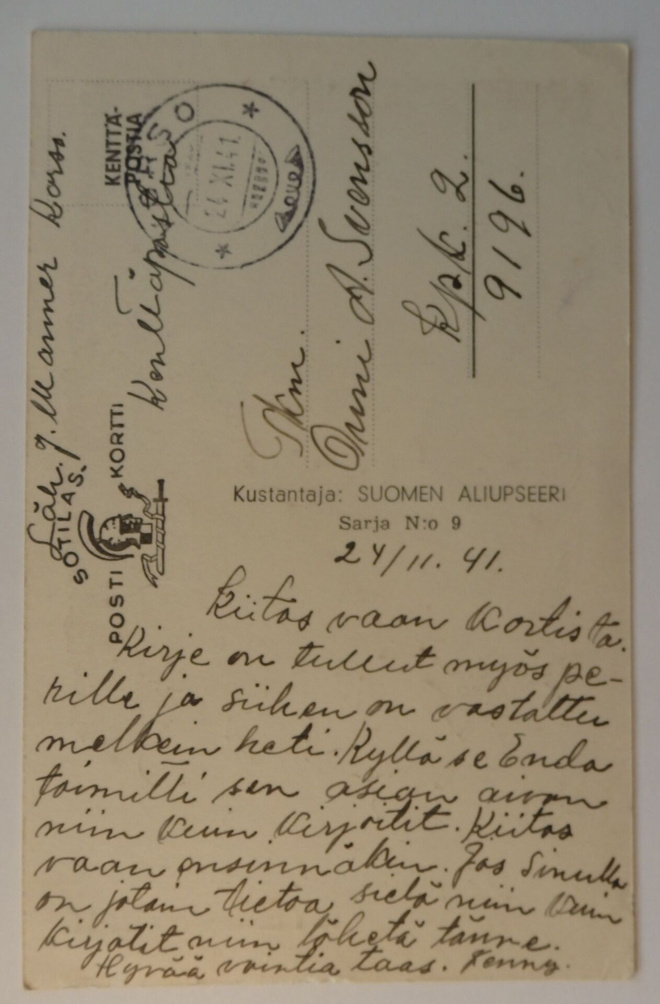 Läh. J. Manner Kers.
SOTILAS
POSTI KORTTI
KENTTÄ-
POSTIA
Kenttäpostia
24.XI.41
Tkm.
Onni A. Svensson
Kpk. 2.
9196.
Kustantaja: SUOMEN ALIUPSEERI
Sarja N:o 9
24/11. 41.
Kiitos vaan Kortista.
Kirje on tullut myös pe-
rille ja siihen on vastattu
melkein heti. Kyllä se Enda
toimitti sen asian aivan
niin kuin Kirjoitit. Kiitos
vaan ensinnäkin. Jos Sinulla
on jotain tietoa sielä niin kuin
Kirjotit niin lähetä tänne.
Hyvää vointia taas. Jenny.